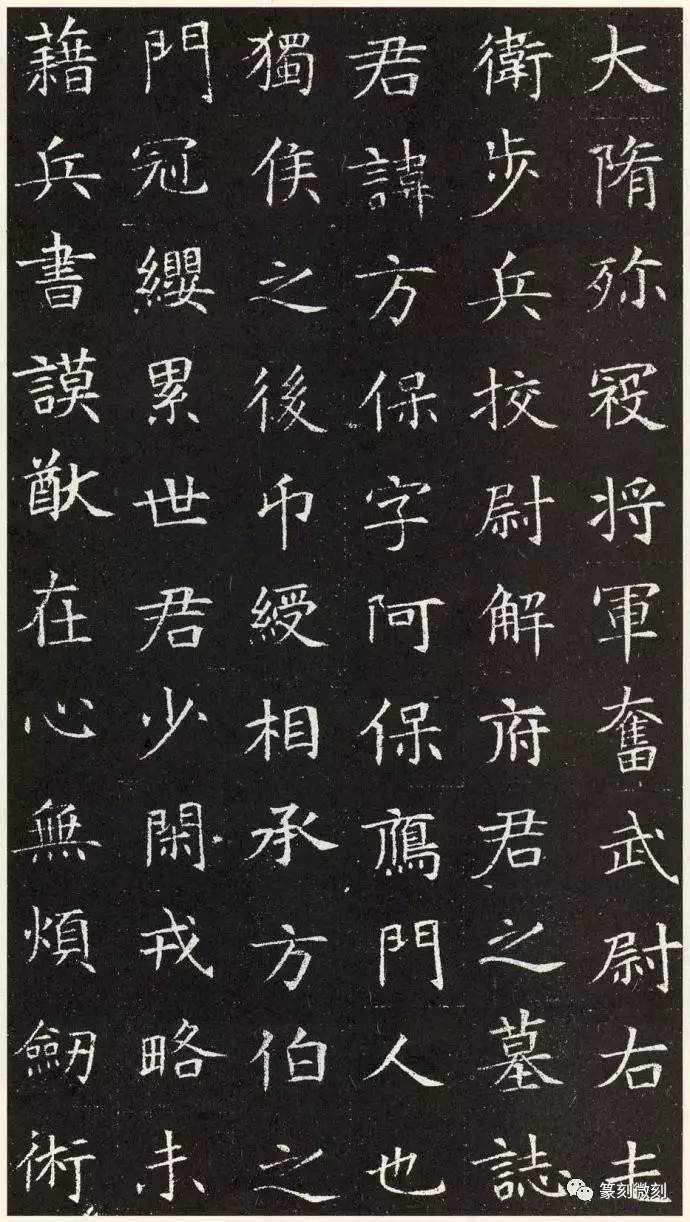 大隋殄寇将軍奮武尉右
衛步兵挍尉解府君之墓誌
君諱方保字阿保鴈門人也
獨侯之後印綬相承方伯之
門冠纓累世君少閑戎略未
藉兵書謨猷在心無煩劒術
篆刻微刻